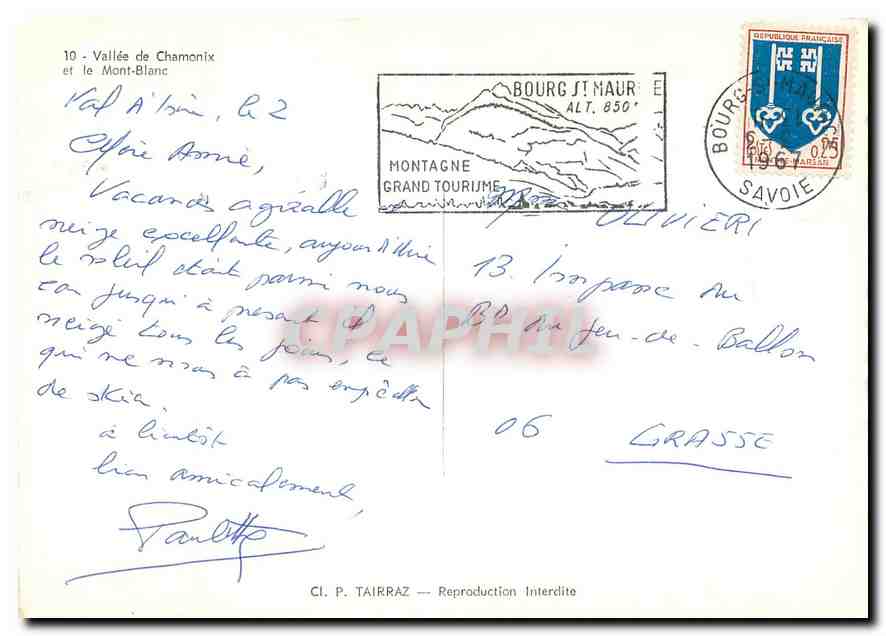 10 - Vallée de Chamonix
et le Mont-Blanc
Val d'Isère, le 2
Chère Annie,
Vacances agréable
neige excellente, aujourd'hui
le soleil était parmi nous
car jusqu'à présent il
neigé tous les jours, ce
qui ne nous a pas empêcher
de skier.
à bientôt
bien amicalement,
Paulette
BOURG ST MAUR E
ALT. 850
MONTAGNE
GRAND TOURISME
REPUBLIQUE FRANÇAISE
POSTES 0,25
MONT-DE-MARSAN
BOURG-ST-MAU
1967
SAVOIE
OLIVIERI
13. Impasse du
BD du Jeu-de-Ballon
06 GRASSE
CPAPHIL
Cl. P. TAIRRAZ — Reproduction Interdite